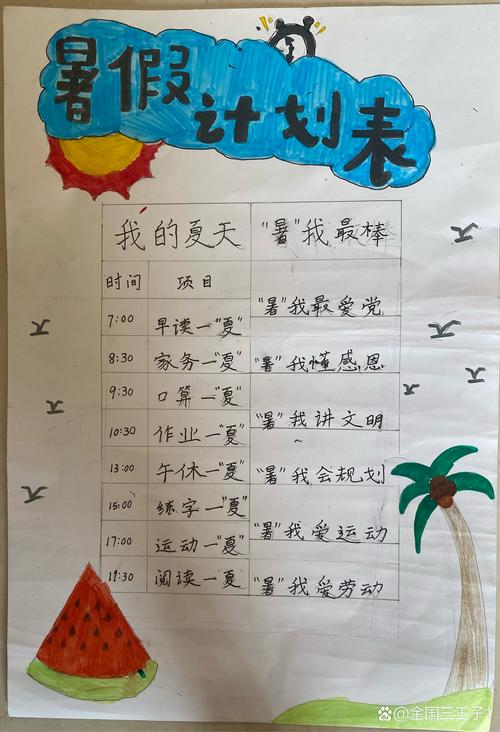 暑假计划表
我的夏天 "暑"我最棒
时间 项目
"暑"我最爱党
7:00 早读一"夏"
8:30 家务一"夏" "暑"我懂感恩
9:30 口算一"夏"
"暑"我讲文明
10:30 作业一"夏"
13:00 午休一"夏" "暑"我会规划
15:00 练字一"夏"
17:00 运动一"夏" "暑"我爱运动
19:30 阅读一"夏" "暑"我爱劳动
@全国三王子1